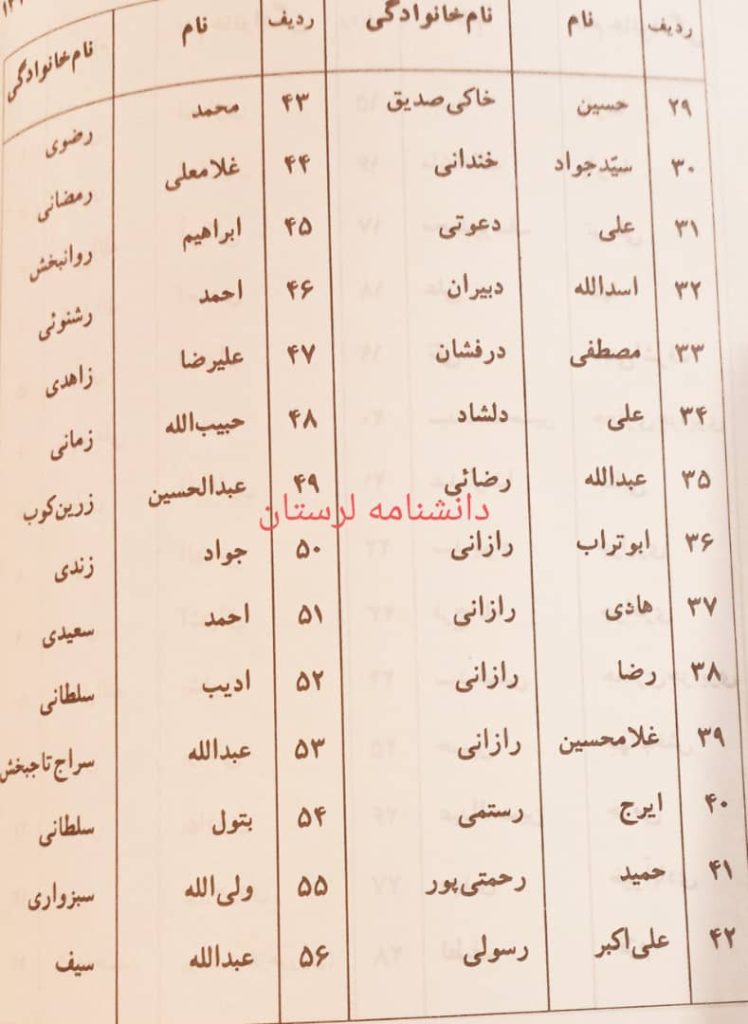 ردیف نام نام‌خانوادگی ردیف نام نام‌خانوادگی
۲۹ حسین خاکی‌صدیق ۴۳ محمد رضوی
۳۰ سیّدجواد خندانی ۴۴ غلامعلی رمضانی
۳۱ علی دعوتی ۴۵ ابراهیم روانبخش
۳۲ اسدالله دبیران ۴۶ احمد رشنوئی
۳۳ مصطفی درفشان ۴۷ علیرضا زاهدی
۳۴ علی دلشاد ۴۸ حبیب‌الله زمانی
۳۵ عبدالله رضائی ۴۹ عبدالحسین زرین‌کوب
دانشنامه لرستان
۳۶ ابوتراب رازانی ۵۰ جواد زندی
۳۷ هادی رازانی ۵۱ احمد سعیدی
۳۸ رضا رازانی ۵۲ ادیب سلطانی
۳۹ غلامحسین رازانی ۵۳ عبدالله سراج تاجبخش
۴۰ ایرج رستمی ۵۴ بتول سلطانی
۴۱ حمید رحمتی‌پور ۵۵ ولی‌الله سبزواری
۴۲ علی‌اکبر رسولی ۵۶ عبدالله سیف